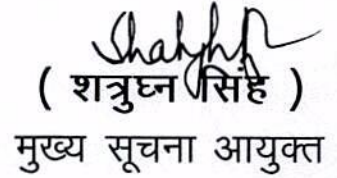 ( शत्रुघ्न सिंह )
मुख्य सूचना आयुक्त